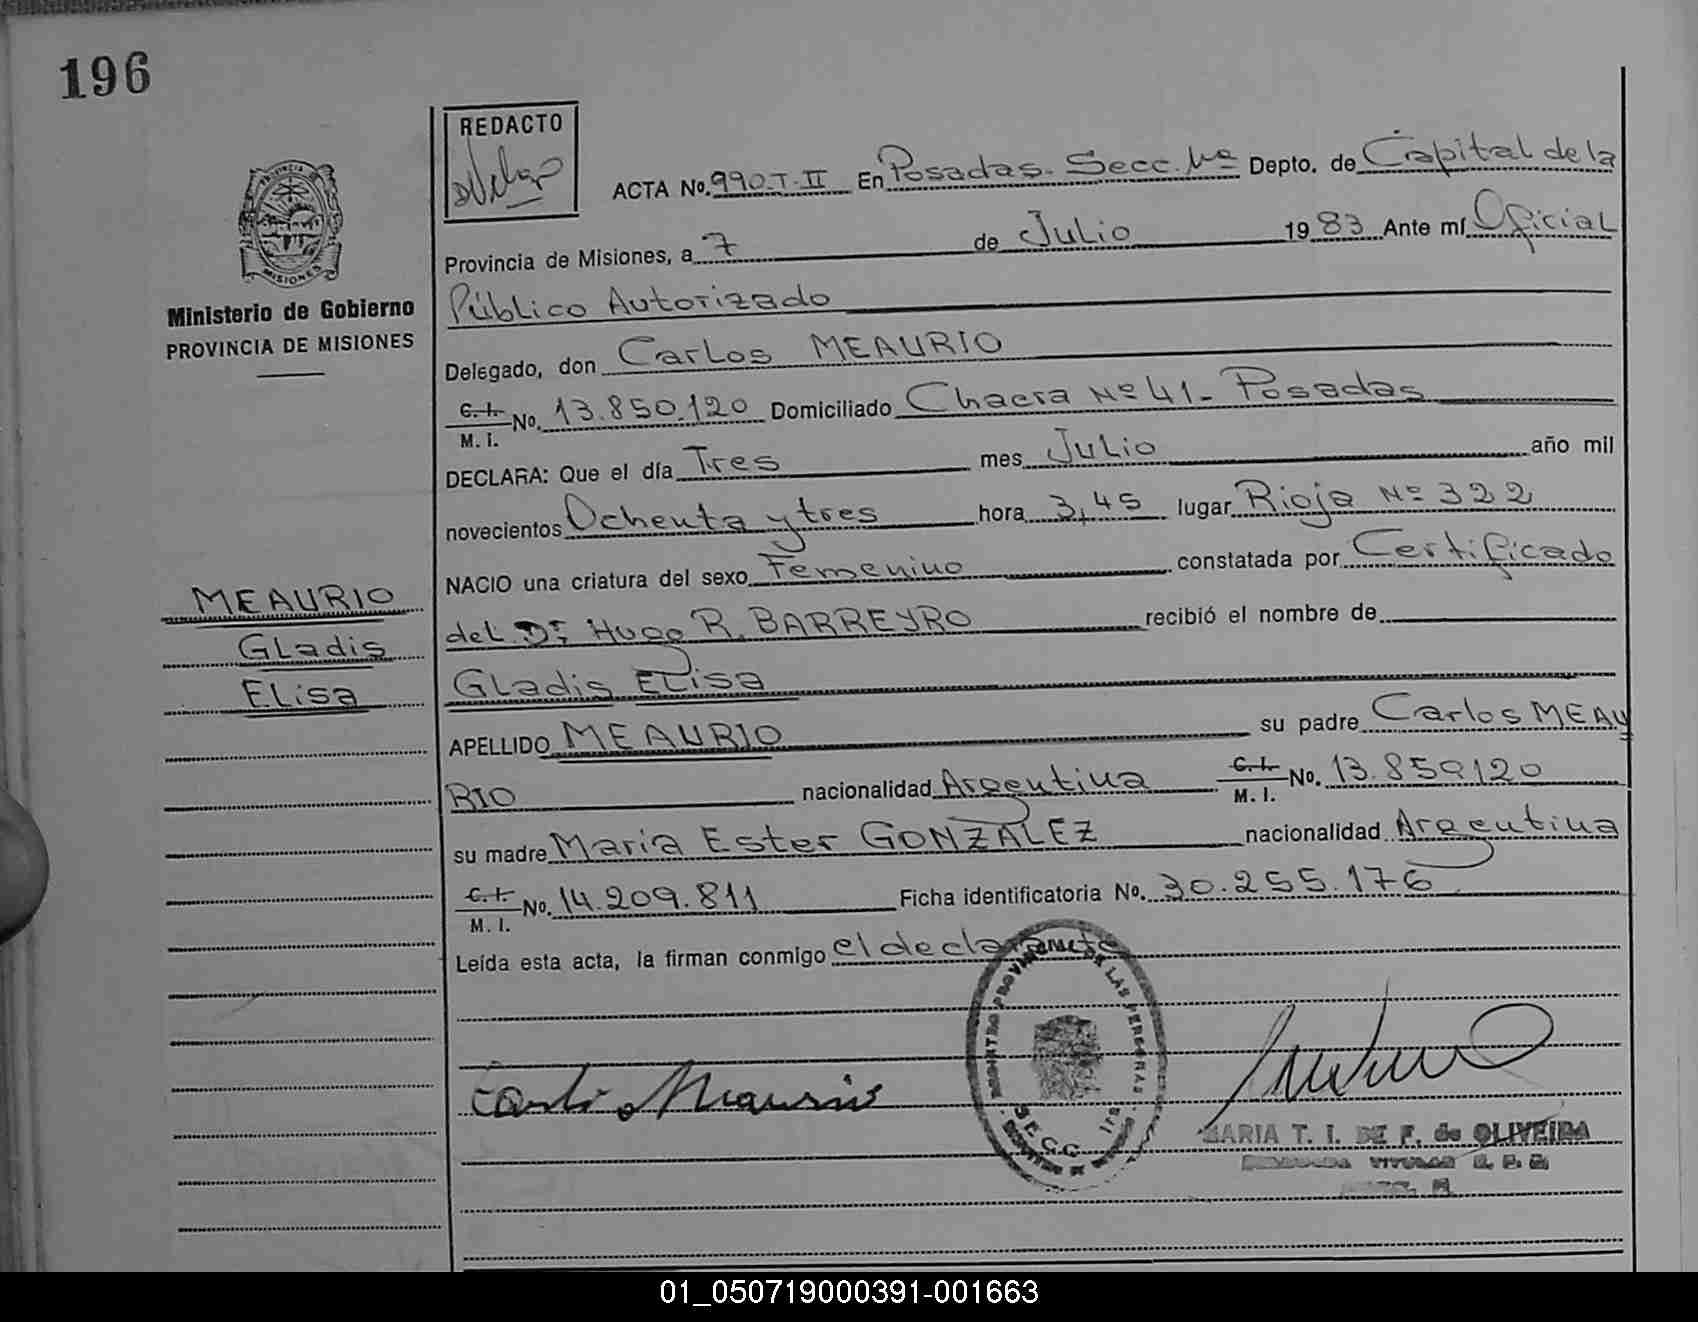 196
REDACTO
PROVINCIA DE
MISIONES
Ministerio de Gobierno
PROVINCIA DE MISIONES
MEAURIO
Gladis
Elisa
ACTA No. 990.T.II En Posadas. Secc. Depto. de Capital de la
Provincia de Misiones, a 7 de Julio 1983 Ante mí Oficial
Público Autorizado
Delegado, don Carlos MEAURIO
C. I. M. I. No. 13.850.120 Domiciliado Chacra Nº 41- Posadas
DECLARA: Que el día Tres mes Julio año mil
novecientos Ochenta y tres hora 3,45 lugar Rioja Nº 322
NACIO una criatura del sexo Femenino constatada por Certificado
del Dr. Hugo R. BARREYRO recibió el nombre de
Gladis Elisa
APELLIDO MEAURIO su padre Carlos MEAU
RIO nacionalidad Argentina C. I. M. I. No. 13.850120
su madre Maria Ester GONZALEZ nacionalidad Argentina
C. I. M. I. No. 14.209.811 Ficha identificatoria No. 30.255.176
Leída esta acta, la firman conmigo el declarante
REGISTRO PROVINCIAL DE LAS PERSONAS
Carlos Meaurio
MARIA T. I. DE F. de OLIVEIRA
01_050719000391-001663